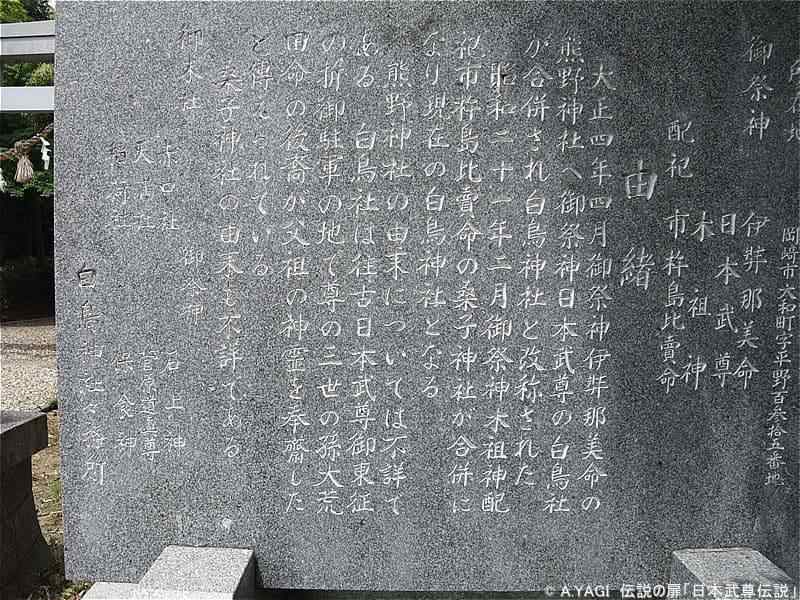 所在地　岡崎市大和町字平野百叁拾五番地
御祭神　伊弉那美命
日本武尊
木祖神
配祀　市杵島比賣命
由緒
大正四年四月御祭神伊弉那美命の
熊野神社へ御祭神日本武尊の白鳥社
が合併され白鳥神社と改称された
昭和二十一年二月御祭神木祖神配
祀市杵島比賣命の桑子神社が合併に
なり現在の白鳥神社となる
熊野神社の由来については不詳で
ある　白鳥社は往古日本武尊御東征
の折御駐軍の地で尊の三世の孫大荒
田命の後裔が父祖の神霊を奉齋した
と傳えられている
桑子神社の由来も不詳である
御末社　御祭神
社口社　石上神
天神社　菅原道真尊
稲荷社　保食神
白鳥神社々務所
© A.YAGI 伝説の扉「日本武尊伝説」